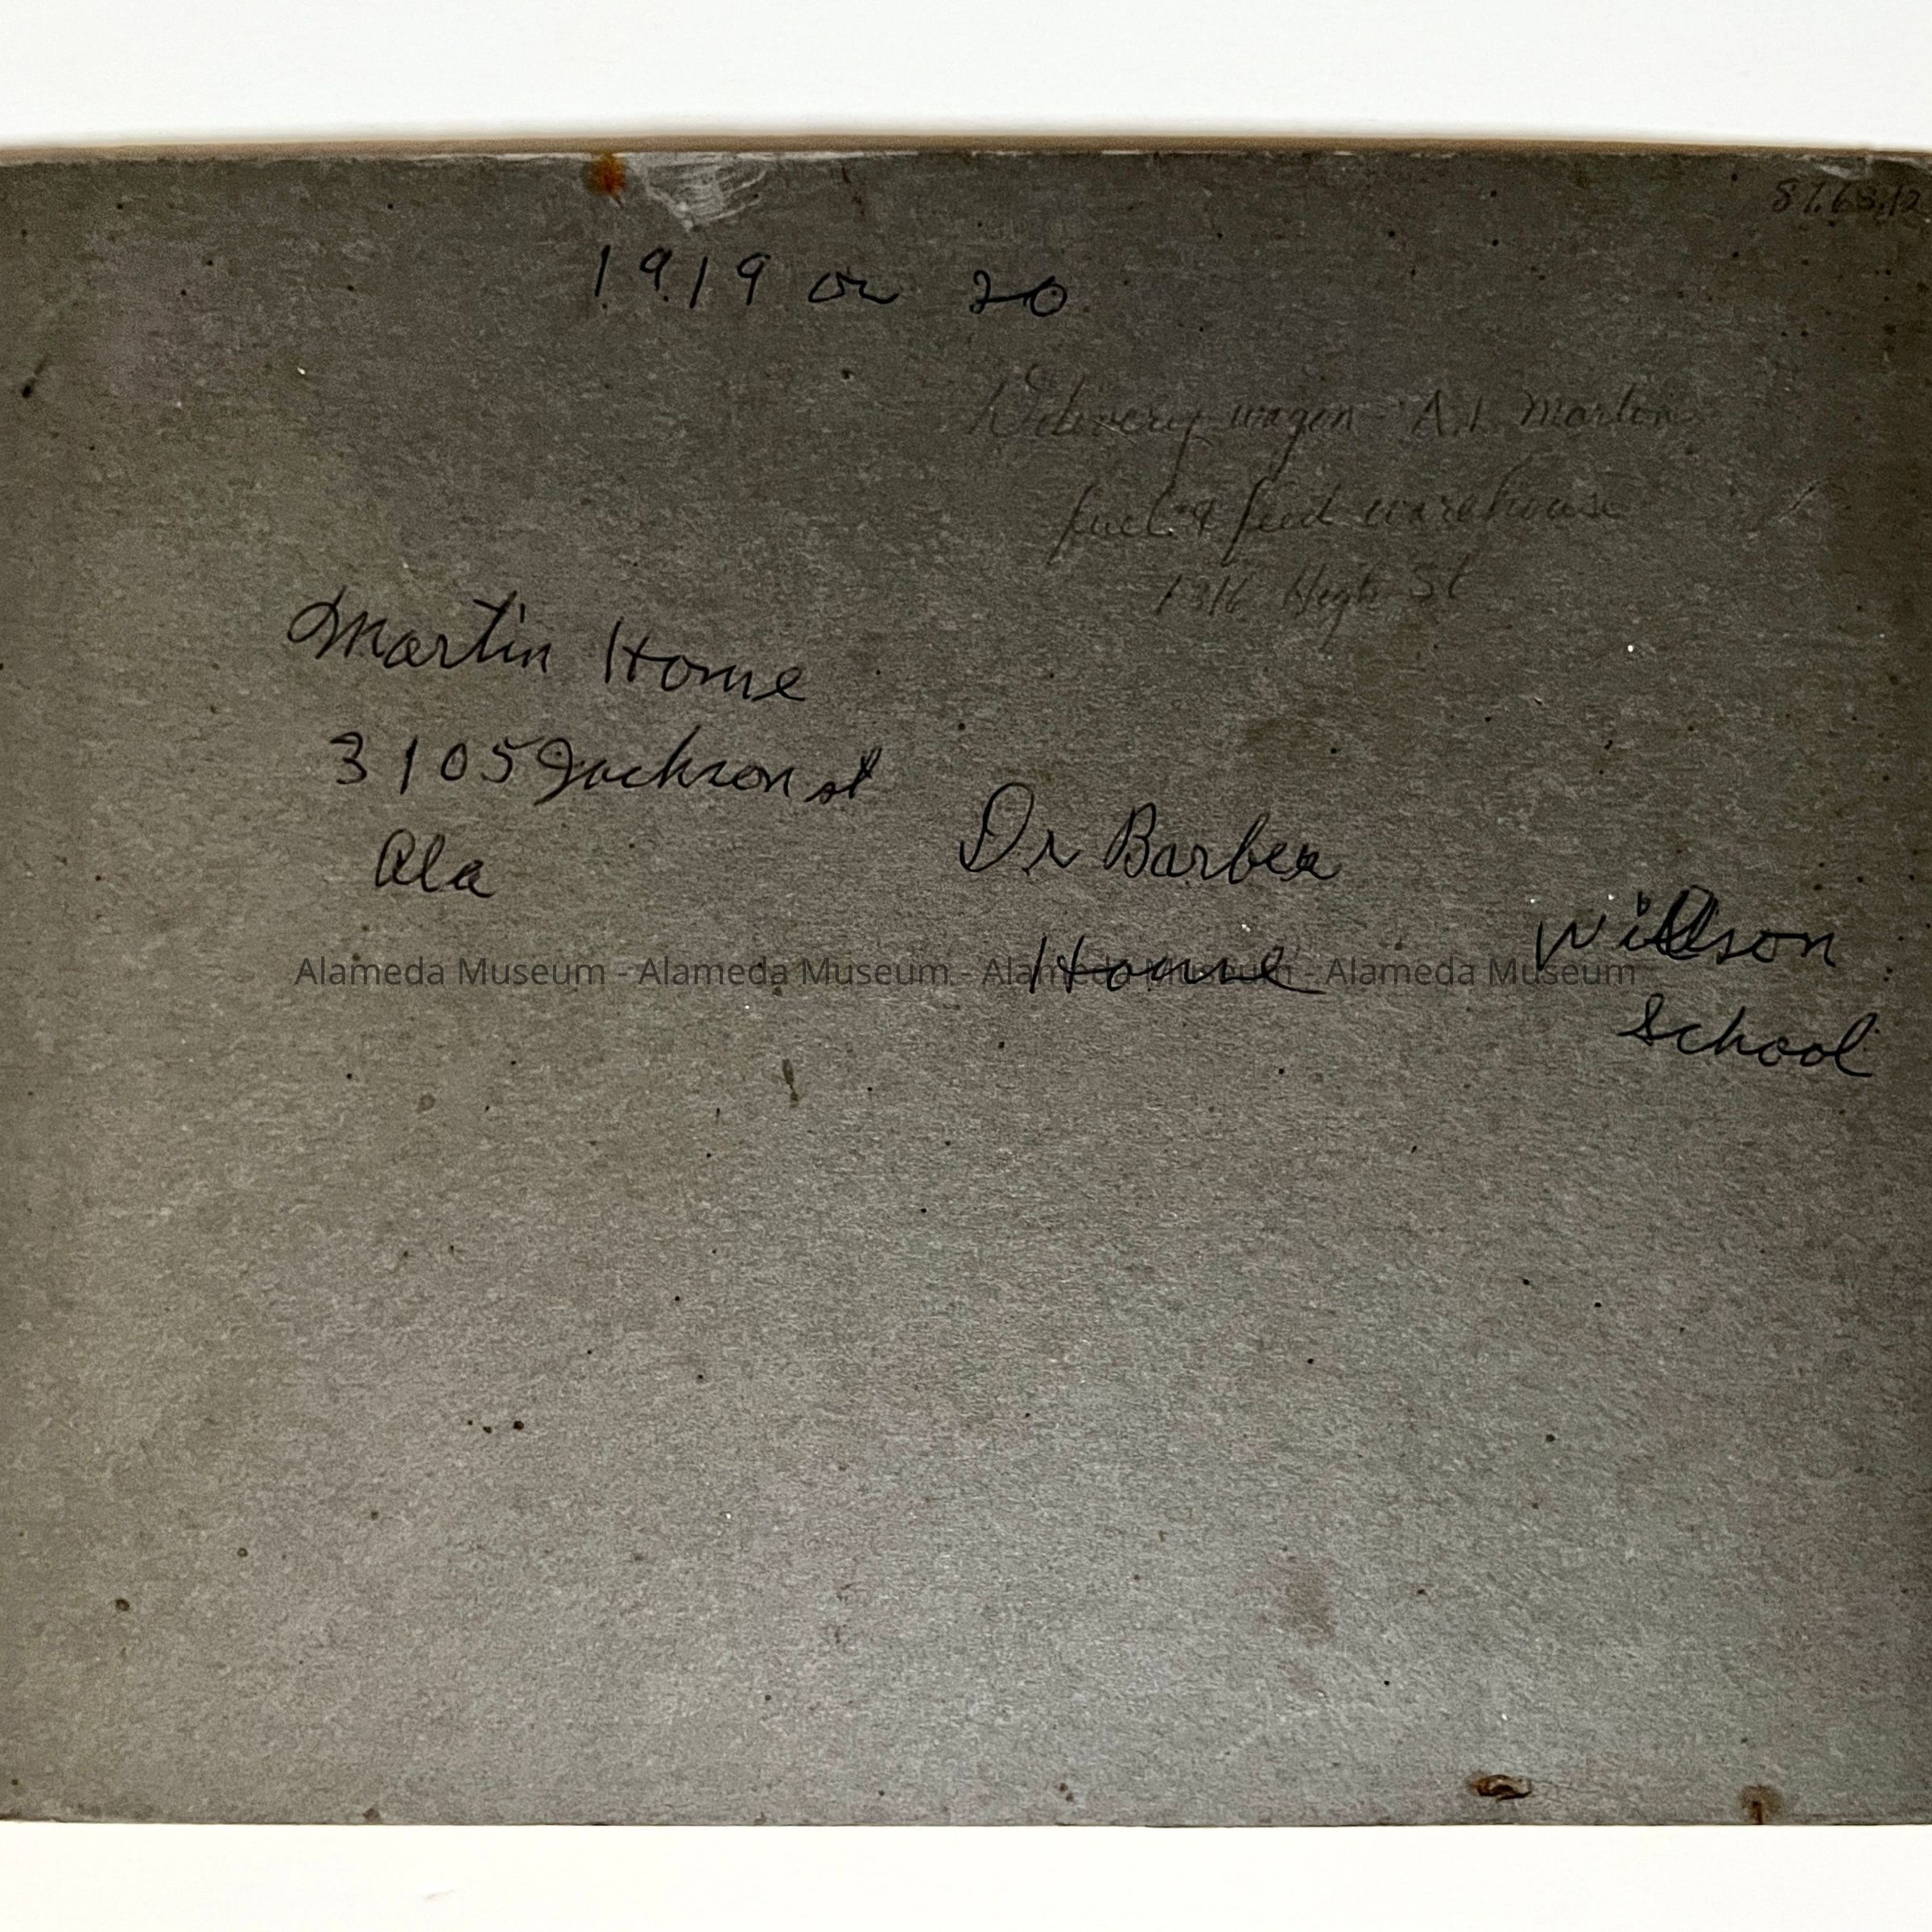 1919 or 20
Delivery wagon - A.L. Martin
fuel & feed warehouse
1316 High St
Martin Home
3105 Jackson st
Ala
Dr Barber
Home
Willson
School
Alameda Museum - Alameda Museum - Alameda Museum - Alameda Museum